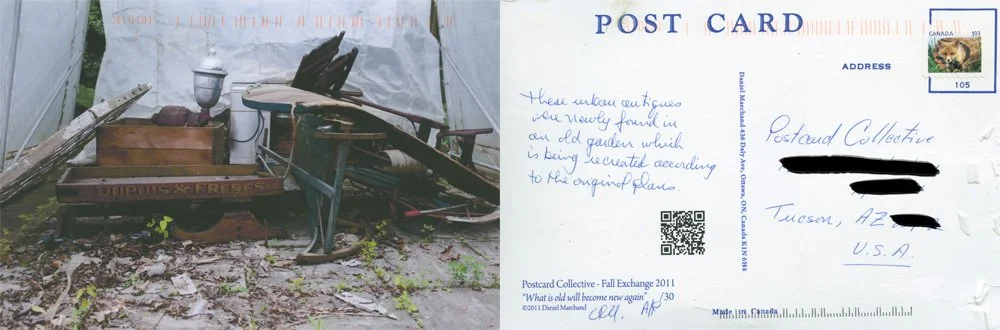 DUPUIS & FRERES
POST CARD
CANADA 103
ADDRESS
105
These urban antiques
were newly found in
an old garden which
is being recreated according
to the original plans.
Daniel Marchand 436 Daly Ave, Ottawa, ON, Canada K1N 6H4
Postcard Collective
Tucson, AZ
U.S.A.
Postcard Collective - Fall Exchange 2011
"What is old will become new again"
©2011 Daniel Marchand
AP/30
Made in Canada